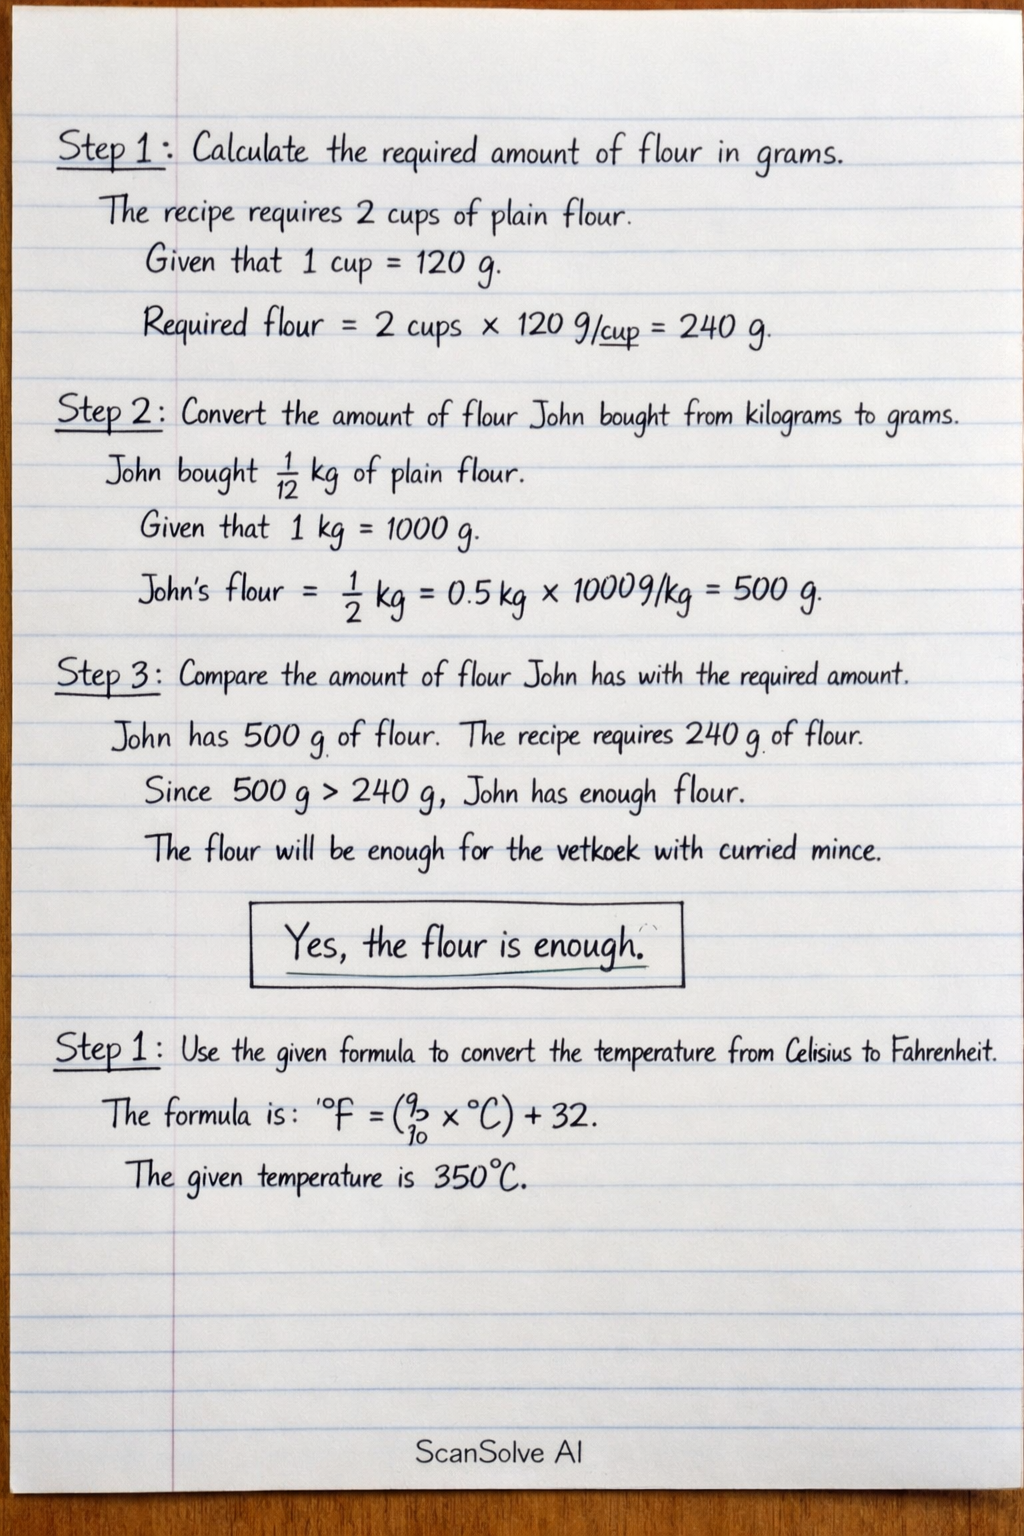 Step 1: Calculate the required amount of flour in grams.
The recipe requires 2 cups of plain flour.
Given that 1 cup = 120 g.
Required flour = 2 cups × 120 g/cup = 240 g.
Step 2: Convert the amount of flour John bought from kilograms to grams.
John bought 1/12 kg of plain flour.
Given that 1 kg = 1000 g.
John's flour = 1/2 kg = 0.5 kg × 1000g/kg = 500 g.
Step 3: Compare the amount of flour John has with the required amount.
John has 500 g of flour. The recipe requires 240 g of flour.
Since 500 g > 240 g, John has enough flour.
The flour will be enough for the vetkoek with curried mince.
Yes, the flour is enough.
Step 1: Use the given formula to convert the temperature from Celisius to Fahrenheit.
The formula is: °F = ( × °C) + 32.
The given temperature is 350°C.
ScanSolve AI